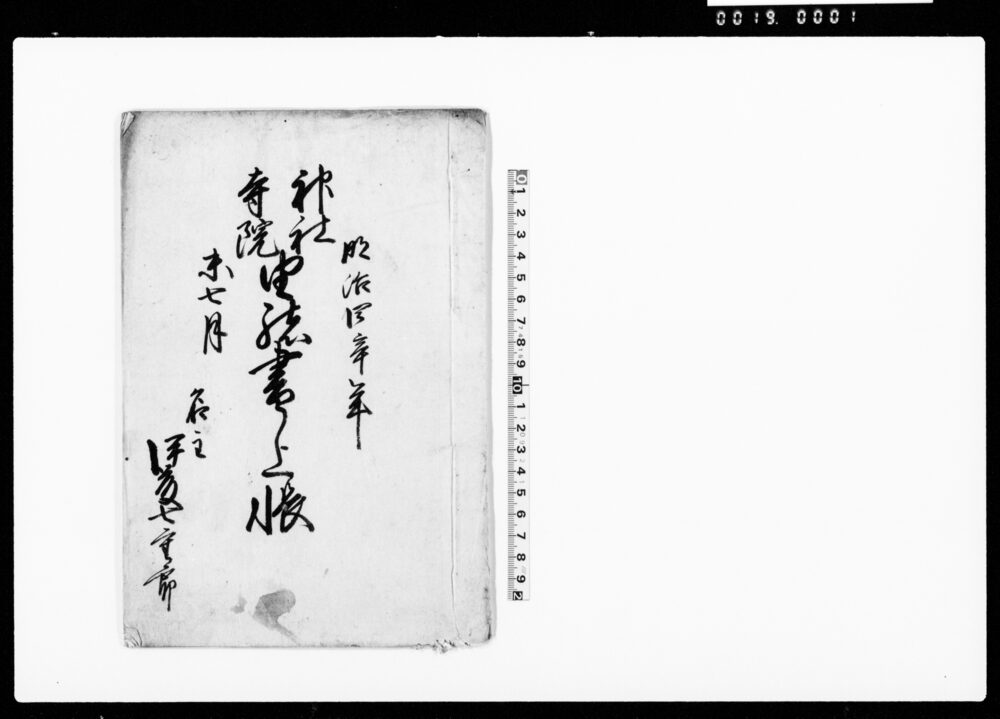 0019. 0001
明治四辛年
神社
寺院
由緒書上帳
未七月
名主
七重郎
0 1 2 3 4 5 6 7 8 9 10 1 2 3 4 5 6 7 8 9 2